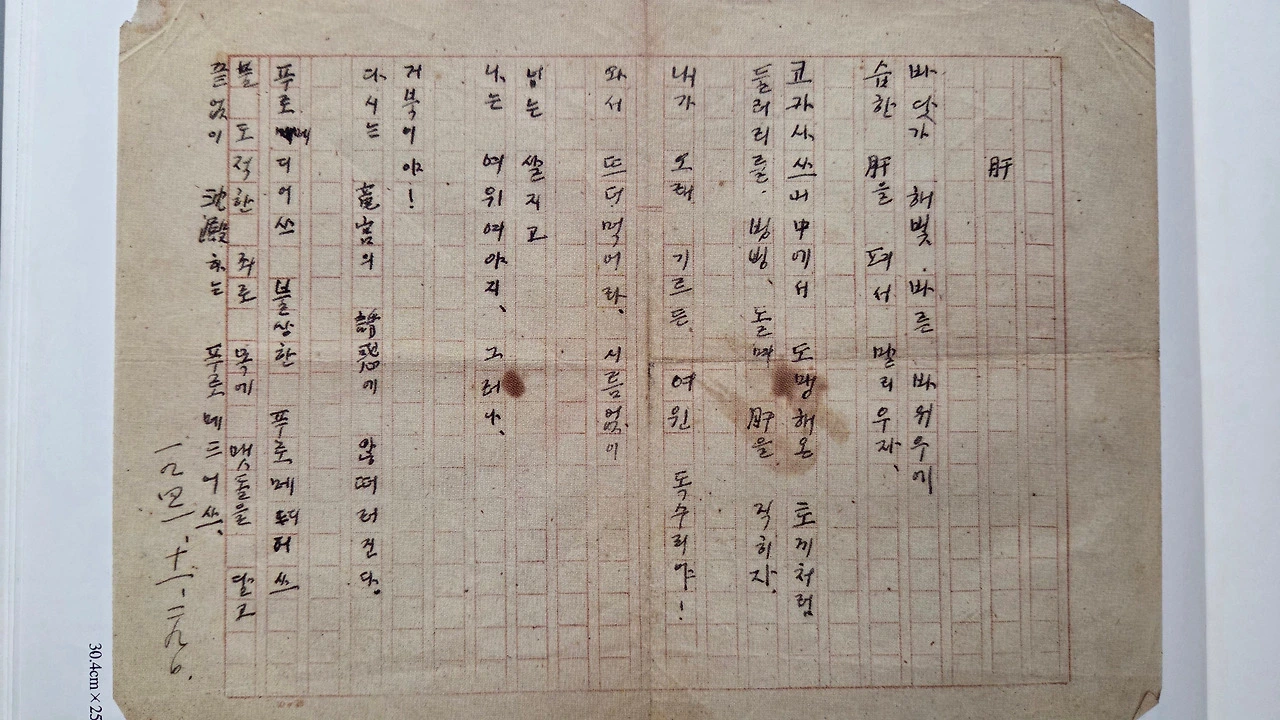 肝
바닷가 해빛 바른 바위우에
습한 肝을 펴서 말리우자、
코카사쓰山中에서 도맹해온 토끼처럼
둘러리를 빙빙、 돌며 肝을 직히자.
내가 오래 기르든 여윈 독수리야!
와서 뜨더먹어라、 시름없이
너는 살지고
나는 여위여야지、 그러나、
거북이야!
다시는 龍宮의 誘惑에 않떠러진다.
푸로메디어쓰 불상한 푸로메디어쓰
불 도적한 죄로 목에 맷돌을 달고
끝없이 沈澱하는 푸로메드어쓰、
一九四一·十一·二九日.
30.4cm×25